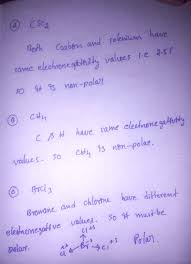 (a) CSe2
Both Carbon and selenium have
same electronegativity values i.e 2.5
so it is non-polar.
(b) CH4
C & H have same electronegativity
values. so CH4 is non-polar.
(c) BrCl3
Bromine and chlorine have different
electronegative values. so it must be
polar.
Cl
Br
Cl
Polar.